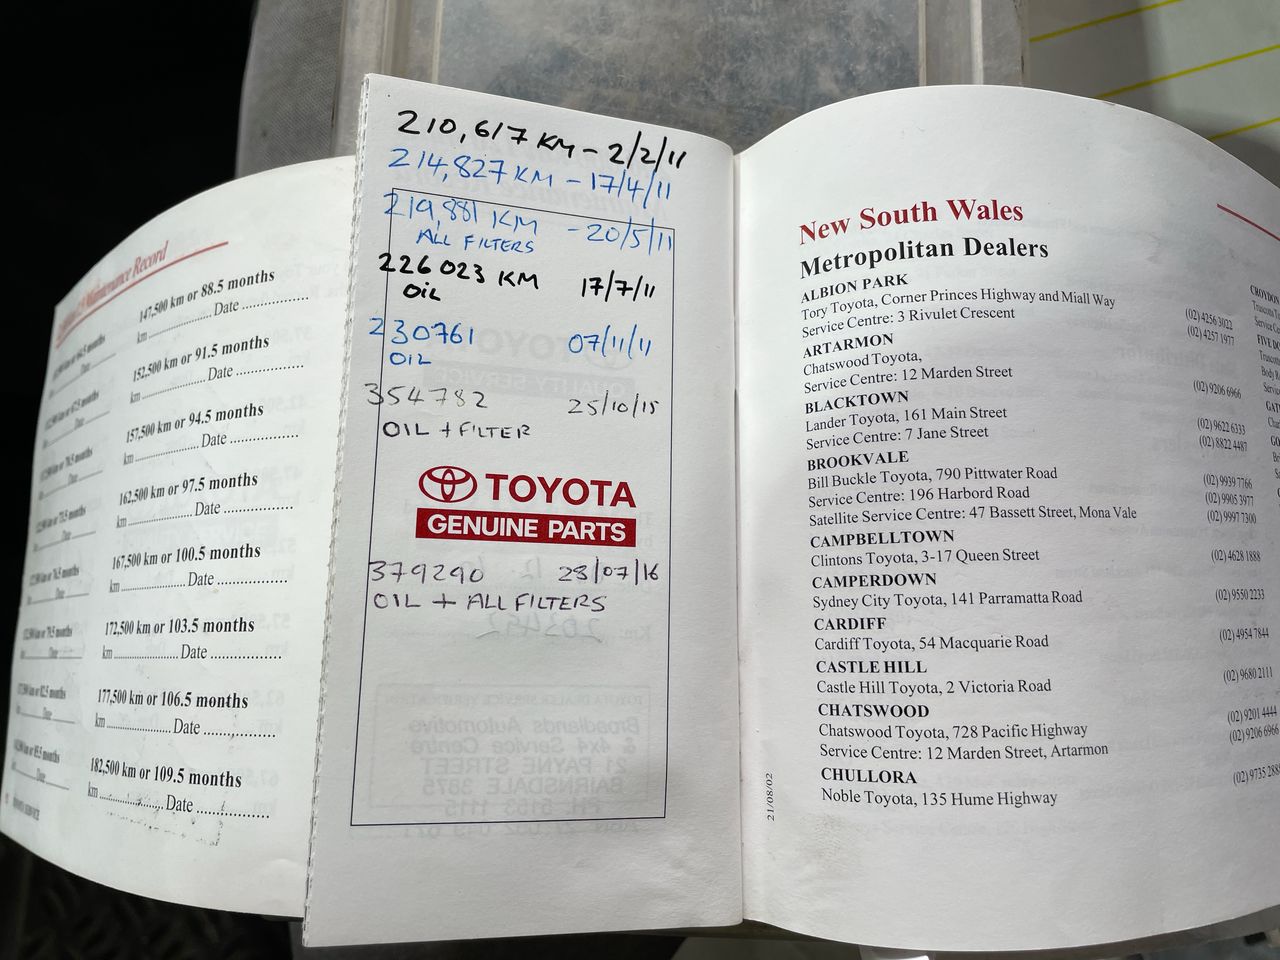 Maintenance Record
147,500 km or 88.5 months
km .................... Date ....................
152,500 km or 91.5 months
km .................... Date ....................
157,500 km or 94.5 months
km .................... Date ....................
162,500 km or 97.5 months
km .................... Date ....................
167,500 km or 100.5 months
km .................... Date ....................
172,500 km or 103.5 months
km .................... Date ....................
177,500 km or 106.5 months
km .................... Date ....................
182,500 km or 109.5 months
km .................... Date ....................
210,617 KM - 2/2/11
214,827 KM - 17/4/11
219,881 KM - 20/5/11
ALL FILTERS
226 023 KM 17/7/11
OIL
230761 07/11/11
OIL
354782 25/10/15
OIL + FILTER
TOYOTA
GENUINE PARTS
379290 28/07/16
OIL + ALL FILTERS
New South Wales
Metropolitan Dealers
ALBION PARK
Tory Toyota, Corner Princes Highway and Miall Way (02) 4256 3022
Service Centre: 3 Rivulet Crescent (02) 4257 1977
ARTARMON
Chatswood Toyota,
Service Centre: 12 Marden Street (02) 9206 6966
BLACKTOWN
Lander Toyota, 161 Main Street (02) 9622 6333
Service Centre: 7 Jane Street (02) 8822 4487
BROOKVALE
Bill Buckle Toyota, 790 Pittwater Road (02) 9939 7766
Service Centre: 196 Harbord Road (02) 9905 3977
Satellite Service Centre: 47 Bassett Street, Mona Vale (02) 9997 7300
CAMPBELLTOWN
Clintons Toyota, 3-17 Queen Street (02) 4628 1888
CAMPERDOWN
Sydney City Toyota, 141 Parramatta Road (02) 9550 2233
CARDIFF
Cardiff Toyota, 54 Macquarie Road (02) 4954 7844
CASTLE HILL
Castle Hill Toyota, 2 Victoria Road (02) 9680 2111
CHATSWOOD
Chatswood Toyota, 728 Pacific Highway (02) 9201 4444
Service Centre: 12 Marden Street, Artarmon (02) 9206 6966
CHULLORA
Noble Toyota, 135 Hume Highway
21/08/02